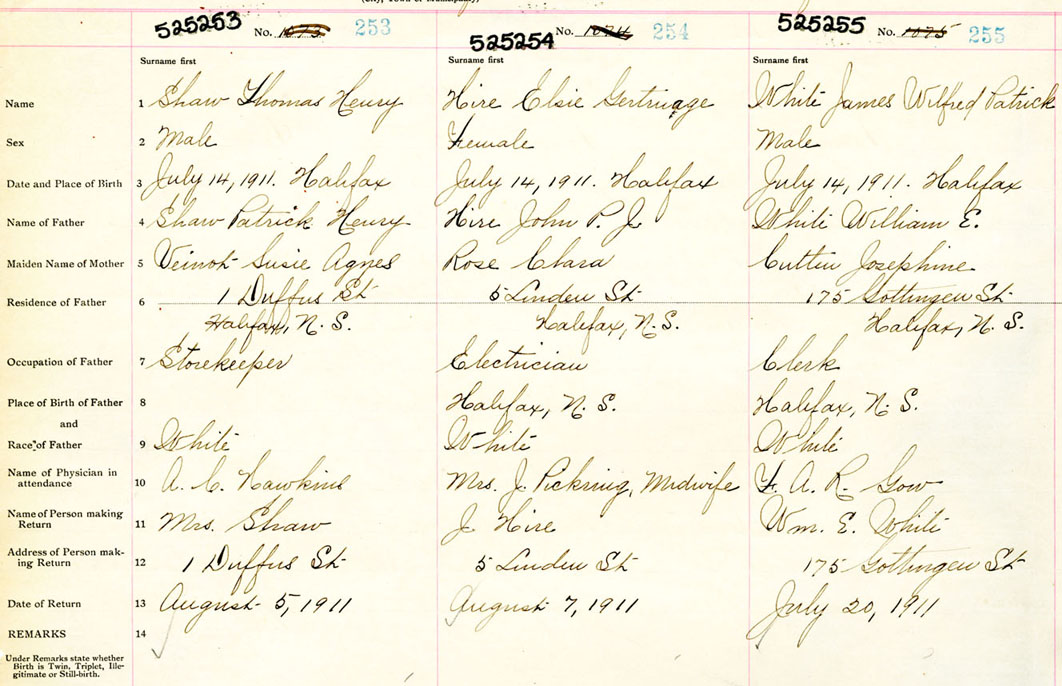 (City, Town or Municipality)
525253 No. 1073 253 525254 No. 1074 254 525255 No. 1075 255
Surname first Surname first Surname first
Name 1 Shaw Thomas Henry Hire Elsie White James Wilfred Patrick
Sex 2 Male Female Male
Date and Place of Birth 3 July 14, 1911. Halifax July 14, 1911. Halifax July 14, 1911. Halifax
Name of Father 4 Shaw Patrick Henry Hire John P. J. White William E.
Maiden Name of Mother 5 Veinot Susie Agnes Rose Clara Josephine
Residence of Father 6 1 Duffus St 5 Linden St 175 Gottingen St
Halifax, N. S. Halifax, N. S. Halifax, N. S.
Occupation of Father 7 Storekeeper Electrician Clerk
Place of Birth of Father 8 Halifax, N. S. Halifax, N. S.
and
Race of Father 9 White White White
Name of Physician in
attendance 10 A. C. Hawkins Mrs. J. Pickring, Midwife F. A. R. Gow
Name of Person making
Return 11 Mrs. Shaw J. Hire Wm. E. White
Address of Person mak-
ing Return 12 1 Duffus St 5 Linden St 175 Gottingen St
Date of Return 13 August 5, 1911 August 7, 1911 July 20, 1911
REMARKS 14
Under Remarks state whether
Birth is Twin, Triplet, Ille-
gitimate or Still-birth.